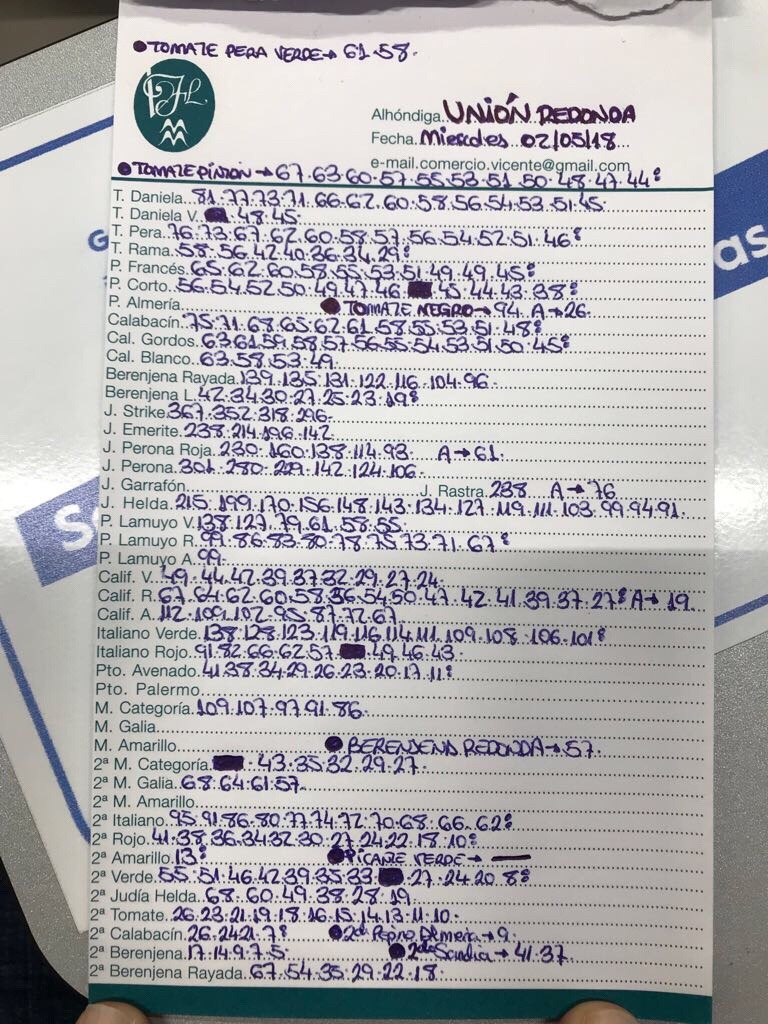 • TOMATE PERA VERDE → 61.58.
Alhóndiga. UNIÓN REDONDA
Fecha. Miercoles 02/05/18
e-mail.comercio.vicente@gmail.com
• TOMATE PINTON → 67.63.60.57.55.53.51.50.48.47.44
T. Daniela. 81.77.73.71.66.62.60.58.56.54.53.51.45
T. Daniela V. 48.45
T. Pera. 76.73.67.62.60.58.57.56.54.52.51.46
T. Rama. 58.56.42.40.36.34.29
P. Francés. 65.62.60.58.55.53.51.49.49.45
P. Corto. 56.54.52.50.49.47.46 45.44.43.38
P. Almería • TOMATE NEGRO → 94. A → 26
Calabacín. 75.71.68.65.62.61.58.55.53.51.48
Cal. Gordos. 63.61.59.58.57.56.55.54.53.51.50.45
Cal. Blanco. 63.58.53.49
Berenjena Rayada. 139.135.131.122.116.104.96
Berenjena L. 42.34.30.27.25.23.19
J. Strike. 367.352.318.296
J. Emerite. 238.214.196.142
J. Perona Roja. 230.160.138.114.93 A → 61
J. Perona. 301.280.229.142.124.106
J. Garrafón J. Rastra. 238 A → 76
J. Helda. 215.199.170.156.148.143.134.127.119.111.103.99.94.91
P. Lamuyo V. 138.127.79.61.58.55
P. Lamuyo R. 99.86.83.80.78.75.73.71.67
P. Lamuyo A. 99
Calif. V. 49.44.42.39.37.32.29.27.24
Calif. R. 67.64.62.60.58.36.54.50.47.42.41.39.37.27 A → 19
Calif. A. 112.109.102.95.87.72.67
Italiano Verde. 138.128.123.119.116.114.111.109.108.106.101
Italiano Rojo. 91.82.66.62.57 49.46.43
Pto. Avenado. 41.38.34.29.26.23.20.17.11
Pto. Palermo
M. Categoría. 109.107.97.91.86
M. Galia
M. Amarillo • BERENJENA REDONDA → 57
2ª M. Categoría. 43.35.32.29.27
2ª M. Galia. 68.64.61.57
2ª M. Amarillo
2ª Italiano. 95.91.86.80.77.74.72.70.68.66.62
2ª Rojo. 41.38.36.34.32.30.27.24.22.18.10
2ª Amarillo. 13 • PICANTE VERDE → —
2ª Verde. 55.51.46.42.39.35.33 27.24.20.8
2ª Judía Helda. 68.60.49.38.28.19
2ª Tomate. 26.23.21.19.18.16.15.14.13.11.10
2ª Calabacín. 26.24.21.7 • 2da Pepino Almeria → 9
2ª Berenjena. 17.14.9.7.5 • 2da Sandia → 41.37
2ª Berenjena Rayada. 67.54.35.29.22.18